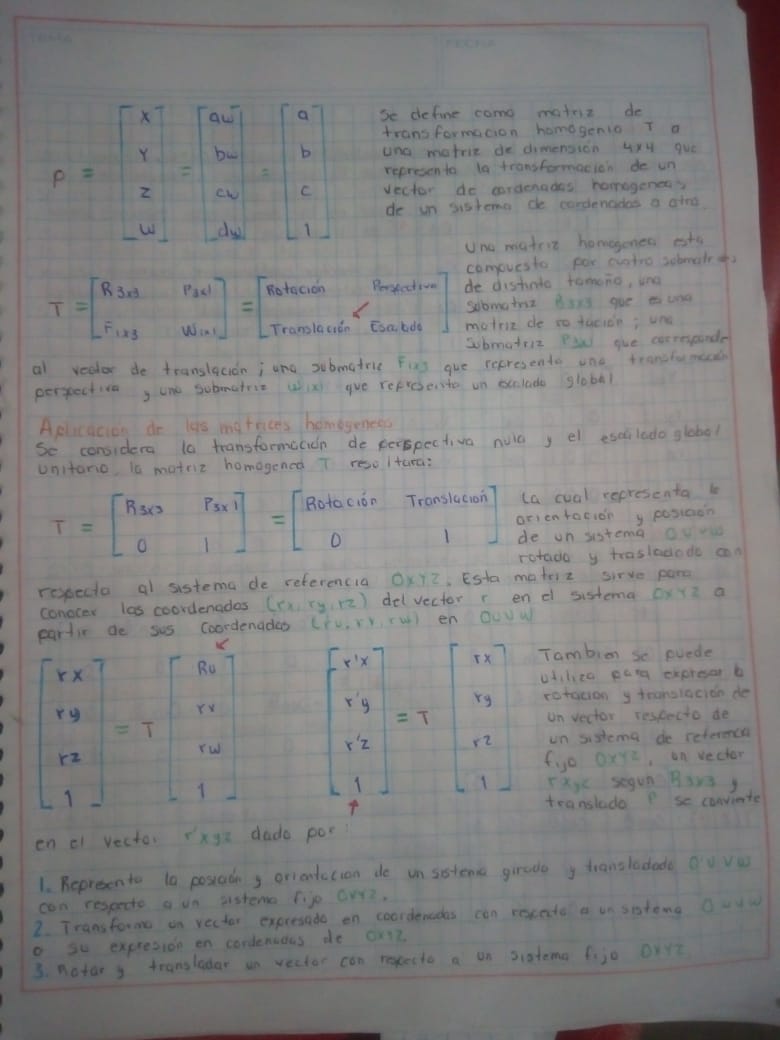 TEMA
FECHA
P = [X Y Z W] = [aw bw cw dw] = [a b c 1]
Se define como matriz de
transformacion homogenia T a
una matriz de dimensión 4x4 que
representa la transformación de un
vector de cordenadas homogeneas
de un sistema de cordenadas a otro.
Una matriz homogenea esta
compuesta por cuatro submatrices
de distinto tamaño, una
submatriz R3x3 que es una
matriz de rotación; una
submatriz que corresponde
T = [R3x3 P3x1 F1x3 W1x1] = [Rotación Perspectiva Translación Escalado]
al vector de translación; una submatriz F1x3 que representa una transformación
perspectiva y una submatriz W1x1 que representa un escalado global
Aplicacion de las matrices homogeneas
Se considera la transformación de perspectiva nula y el escalado global
unitario, la matriz homogenea T resultara:
T = [R3x3 P3x1 0 1] = [Rotación Translación 0 1]
la cual representa la
orientación y posición
de un sistema O'UVW
rotado y trasladado con
respecto al sistema de referencia OXYZ. Esta matriz sirve para
conocer las coordenadas (rx, ry, rz) del vector r en el sistema OXYZ a
partir de sus coordenadas (ru, rv, rw) en OUVW
[rx ry rz 1] = T [Ru rv rw 1]
[r'x r'y r'z 1] = T [rx ry rz 1]
Tambien se puede
utiliza para expresar la
rotacion y translación de
un vector respecto de
un sistema de referencia
fijo OXYZ, un vector
rxyz segun R3x3 y
translado P se convierte
en el vector r'xyz dado por:
1. Representa la posición y orientacion de un sistema girado y transladado O'UVW
con respecto a un sistema fijo OXYZ.
2. Transforma un vector expresado en coordenadas con respecto a un sistema OUVW
a su expresión en cordenadas de OXYZ.
3. Rotar y transladar un vector con respecto a un sistema fijo OXYZ